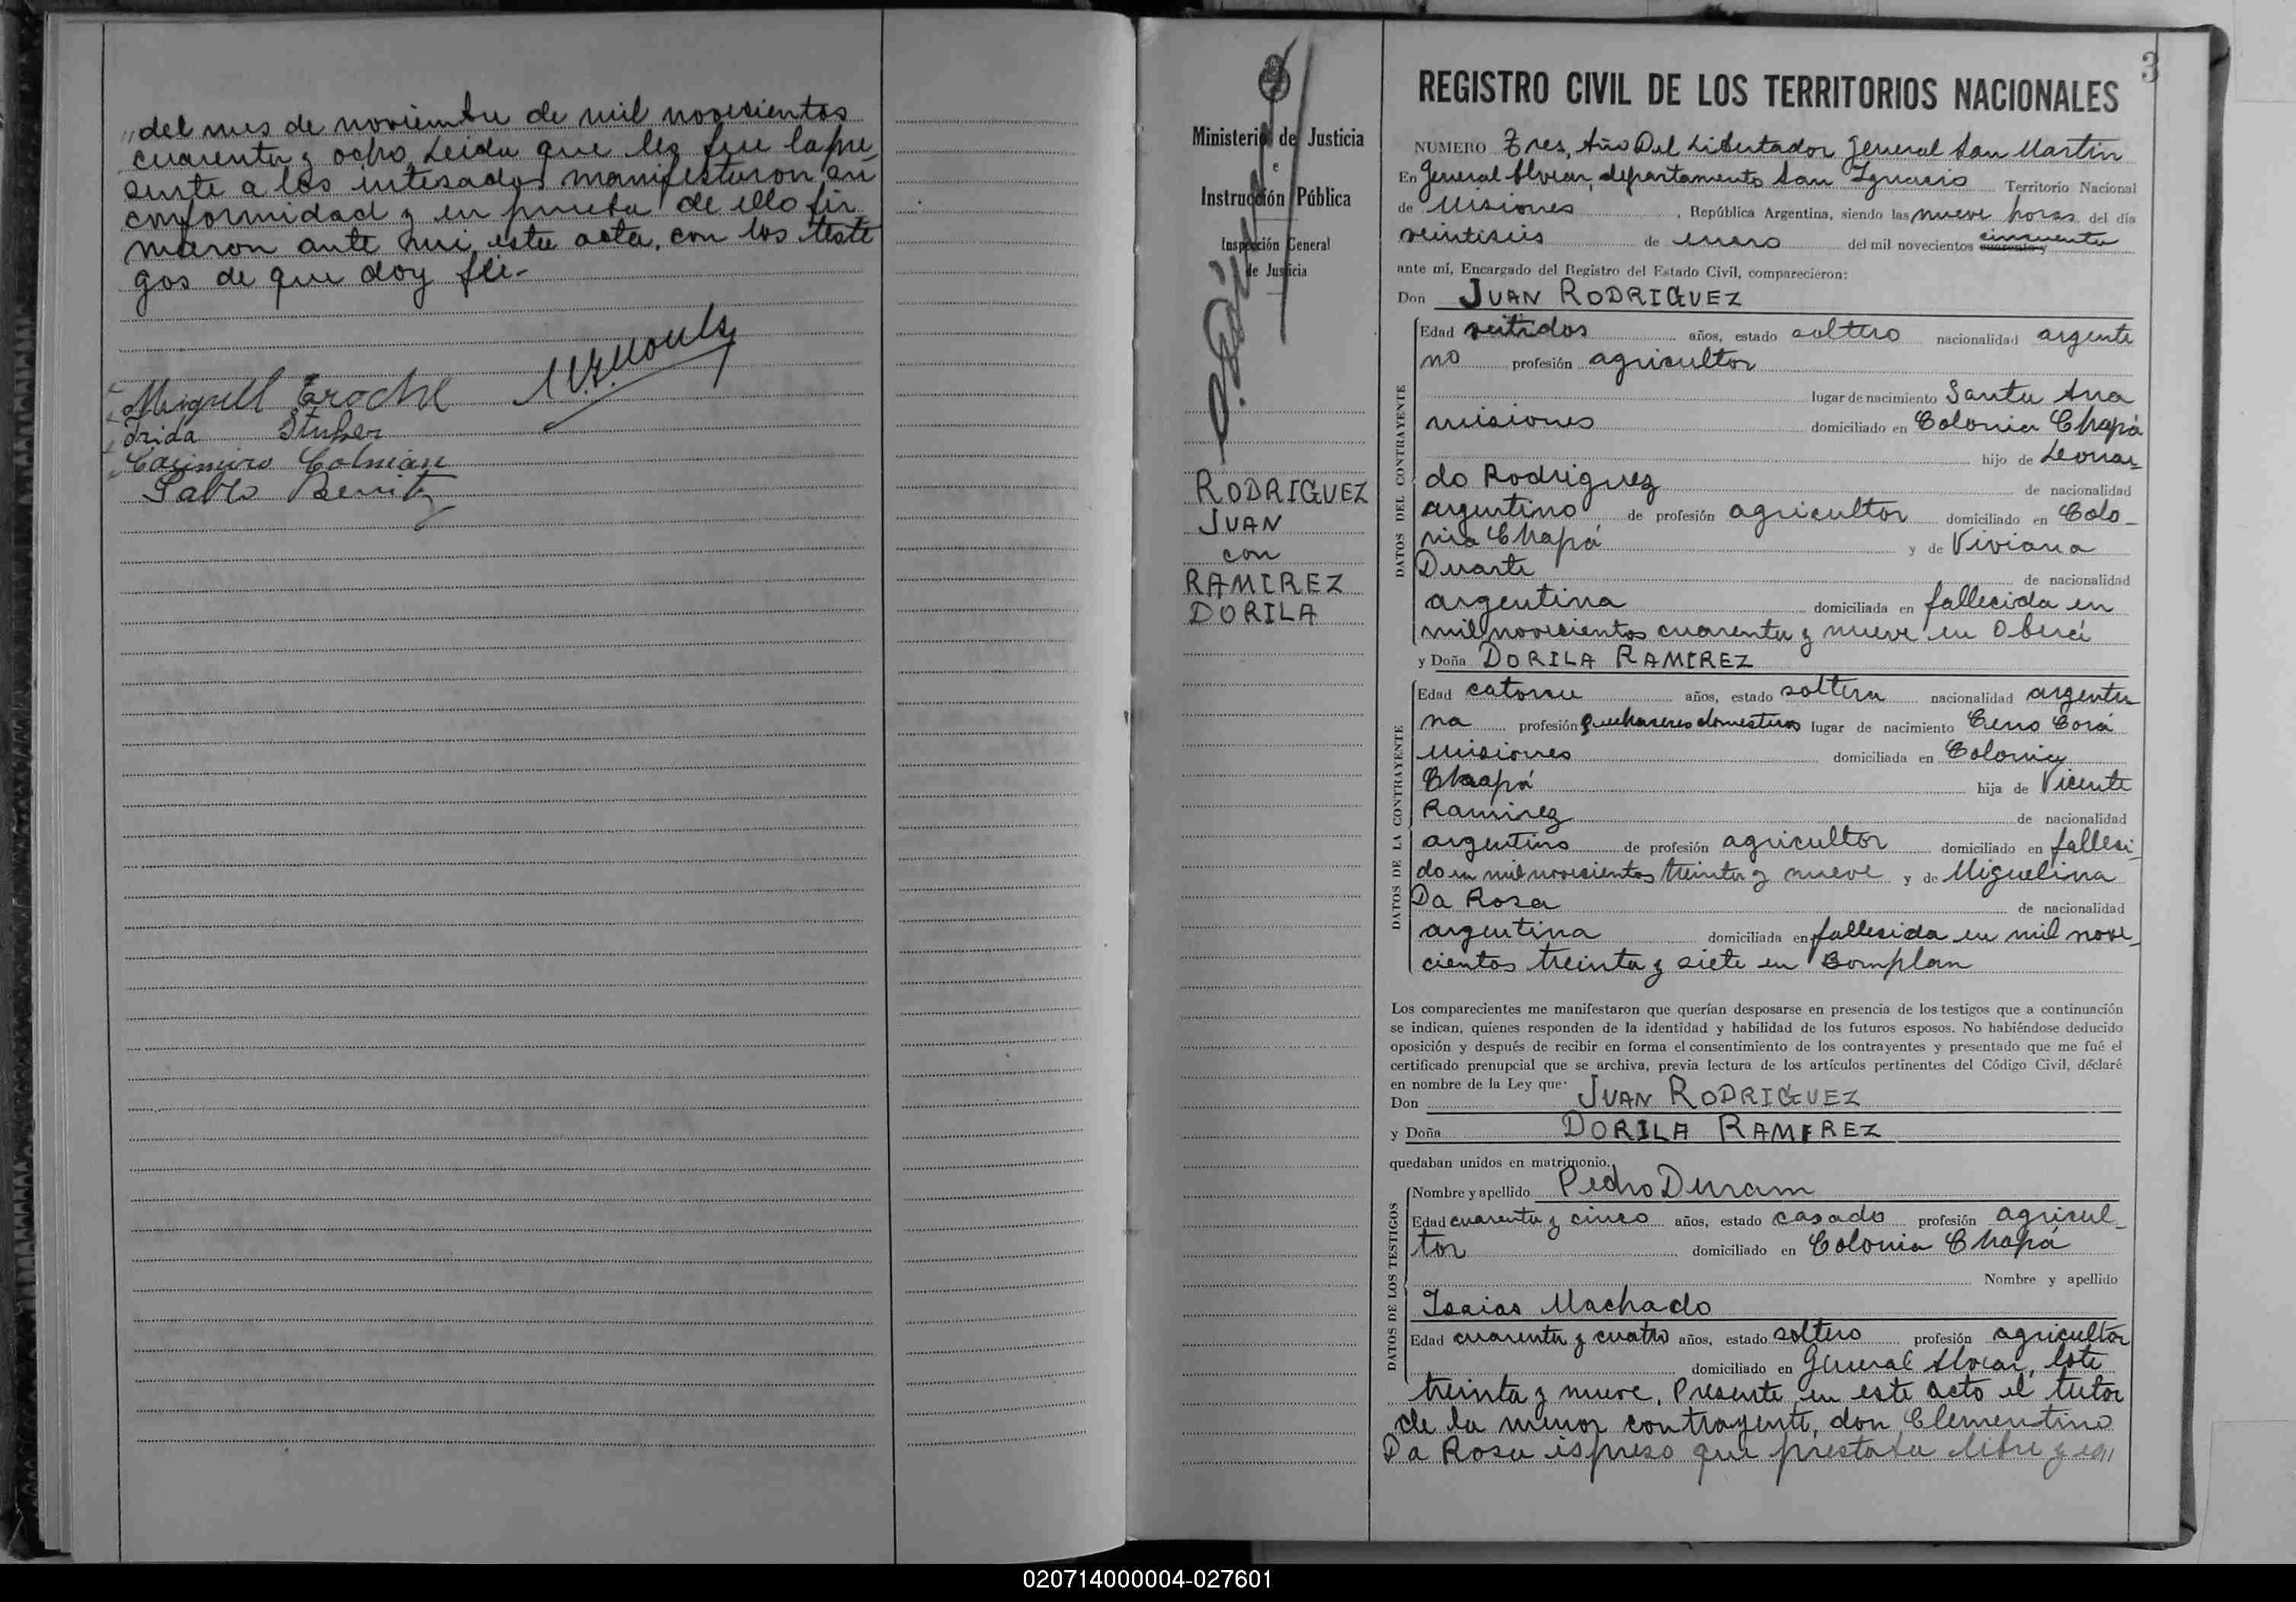 del mes de noviembre de mil novecientos
cuarenta y ocho. Leida que les fue la pre
sente a los intesados manifestaron su
conformidad y en prueba de ello fir
maron ante mi esta acta, con los testi
gos de que doy fé.-
Miguel
Frida Stuber
Casimiro Colman
Pablo Benitz
3
Ministerio de Justicia
e
Instrucción Pública
Inspección General
de Justicia
RODRIGUEZ
JUAN
con
RAMIREZ
DORILA
REGISTRO CIVIL DE LOS TERRITORIOS NACIONALES
NUMERO Tres, Año Del Libertador General San Martin
En General Alvear, departamento San Ignacio Territorio Nacional
de Misiones, República Argentina, siendo las nueve horas del día
veintiseis de enero del mil novecientos cuarenta y cincuenta
ante mí, Encargado del Registro del Estado Civil, comparecieron:
Don JUAN RODRIGUEZ
DATOS DEL CONTRAYENTE
Edad veitidos años, estado soltero nacionalidad argenti
no profesión agricultor
lugar de nacimiento Santa Ana
misiones domiciliado en Colonia Chapá
hijo de Leonar
do Rodriguez de nacionalidad
argentino de profesión agricultor domiciliado en Colo-
nia Chapá y de Viviana
Duarte de nacionalidad
argentina domiciliada en fallecida en
mil novecientos cuarenta y nueve en Oberá
y Doña DORILA RAMIREZ
DATOS DE LA CONTRAYENTE
Edad catorce años, estado soltera nacionalidad argenti
na profesión quehaceres domesticos lugar de nacimiento Cerro Corá
misiones domiciliada en Colonia
Chapá hija de Vicente
Ramirez de nacionalidad
argentino de profesión agricultor domiciliado en falleci
do en mil novecientos treinta y nueve y de Miguelina
Da Rosa de nacionalidad
argentina domiciliada en fallecida en mil nove-
cientos treinta y siete en Bomplan
Los comparecientes me manifestaron que querían desposarse en presencia de los testigos que a continuación
se indican, quienes responden de la identidad y habilidad de los futuros esposos. No habiéndose deducido
oposición y después de recibir en forma el consentimiento de los contrayentes y presentado que me fué el
certificado prenupcial que se archiva, previa lectura de los artículos pertinentes del Código Civil, déclaré
en nombre de la Ley que:
Don JUAN RODRIGUEZ
y Doña DORILA RAMIREZ
quedaban unidos en matrimonio.
DATOS DE LOS TESTIGOS
Nombre y apellido Pedro Duram
Edad cuarenta y cinco años, estado casado profesión agricul-
tor domiciliado en Colonia Chapá
Nombre y apellido
Isaias Machado
Edad cuarenta y cuatro años, estado soltero profesión agricultor
domiciliado en General Alvear, lote
treinta y nueve. Presente en este acto el tutor
de la menor contrayente, don Clementino
Da Rosa espreso que prestaba libre y es
020714000004-027601